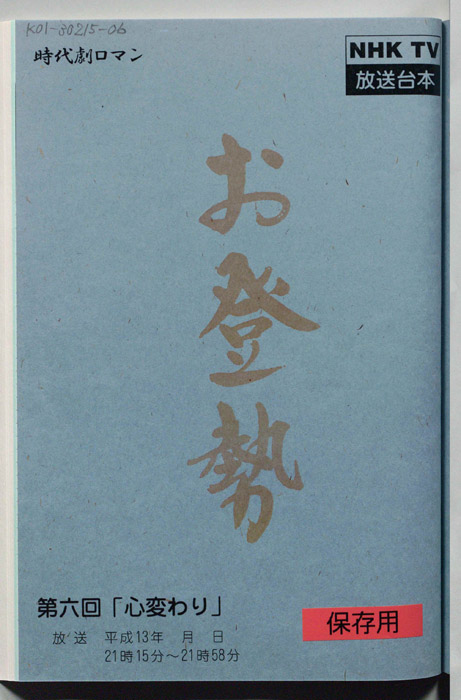 K01-30215-06
時代劇ロマン
NHK TV
放送台本
お登勢
第六回「心変わり」
保存用
放送 平成13年 月 日
21時15分〜21時58分